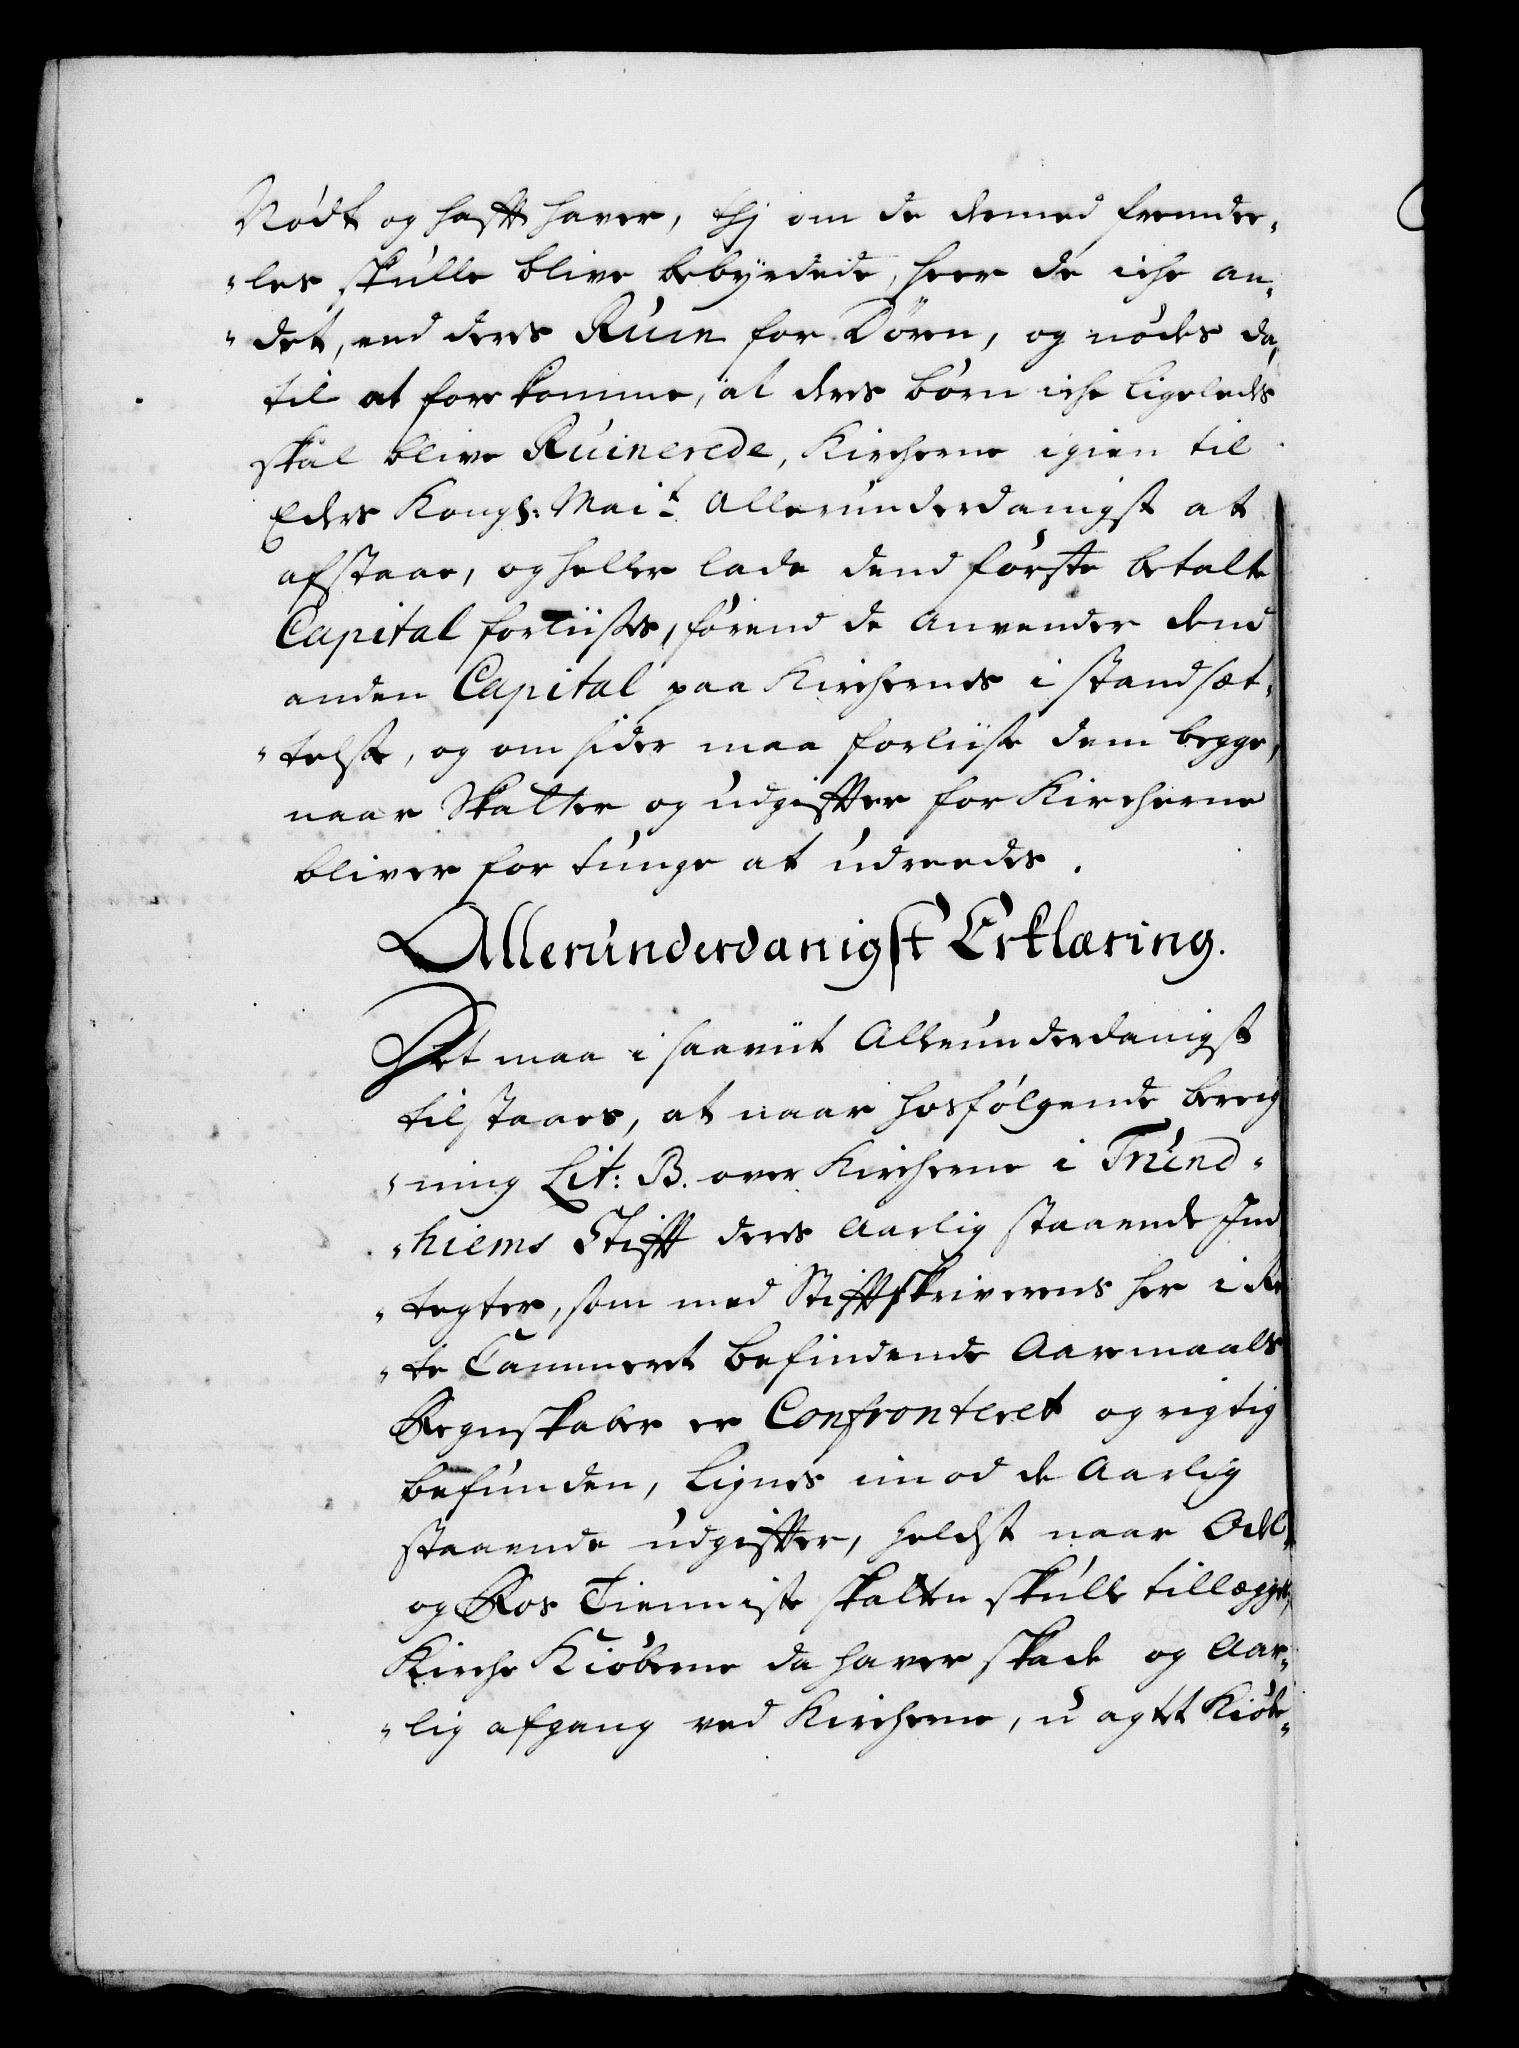 Nødt og hafft haver, thj om de dermed fremdee-
-les skulle blive bebyrdede, seer de iche an-
-det, end deres Ruin for Døren, og nødes da,
til at forekomme, at deres børn iche ligeleds
skal blive Ruinerede, Kircherne igien til
Eders Kongl: Mai.t Allerunderdanigst at
afstaae, og heller lade dend første betalte
Capital forliises, førend de anvender dend
anden Capital paa Kirchernes i standsæt-
-telse, og om sider maa forliise dem begge,
naar Skatter og udgiffter for Kircherne
bliver for tunge at udreedes.
Allerunderdanigst Erklæring.
Det maa i saaviit Allerunderdanigst
tilstaaes, at naar hosfølgende bereig
-ning Lit: B. over Kircherne i Trund-
-hiems Stifft deres Aarlig staaende Ind
-tegter, som med Stifftskriverens her i Re
-te Cammeret befindende Aaremaals
Regnskaber er Confronteret og rigtig
befunden, Lignes imod de Aarlig
staaende udgiffter, heldst naar Odel
og Ros Tienniste skatten skulle tillægges,
Kirche Kiøberne da haver skade og Aar-
-lig afgang ved Kircherne, u agtet Kiøbe-